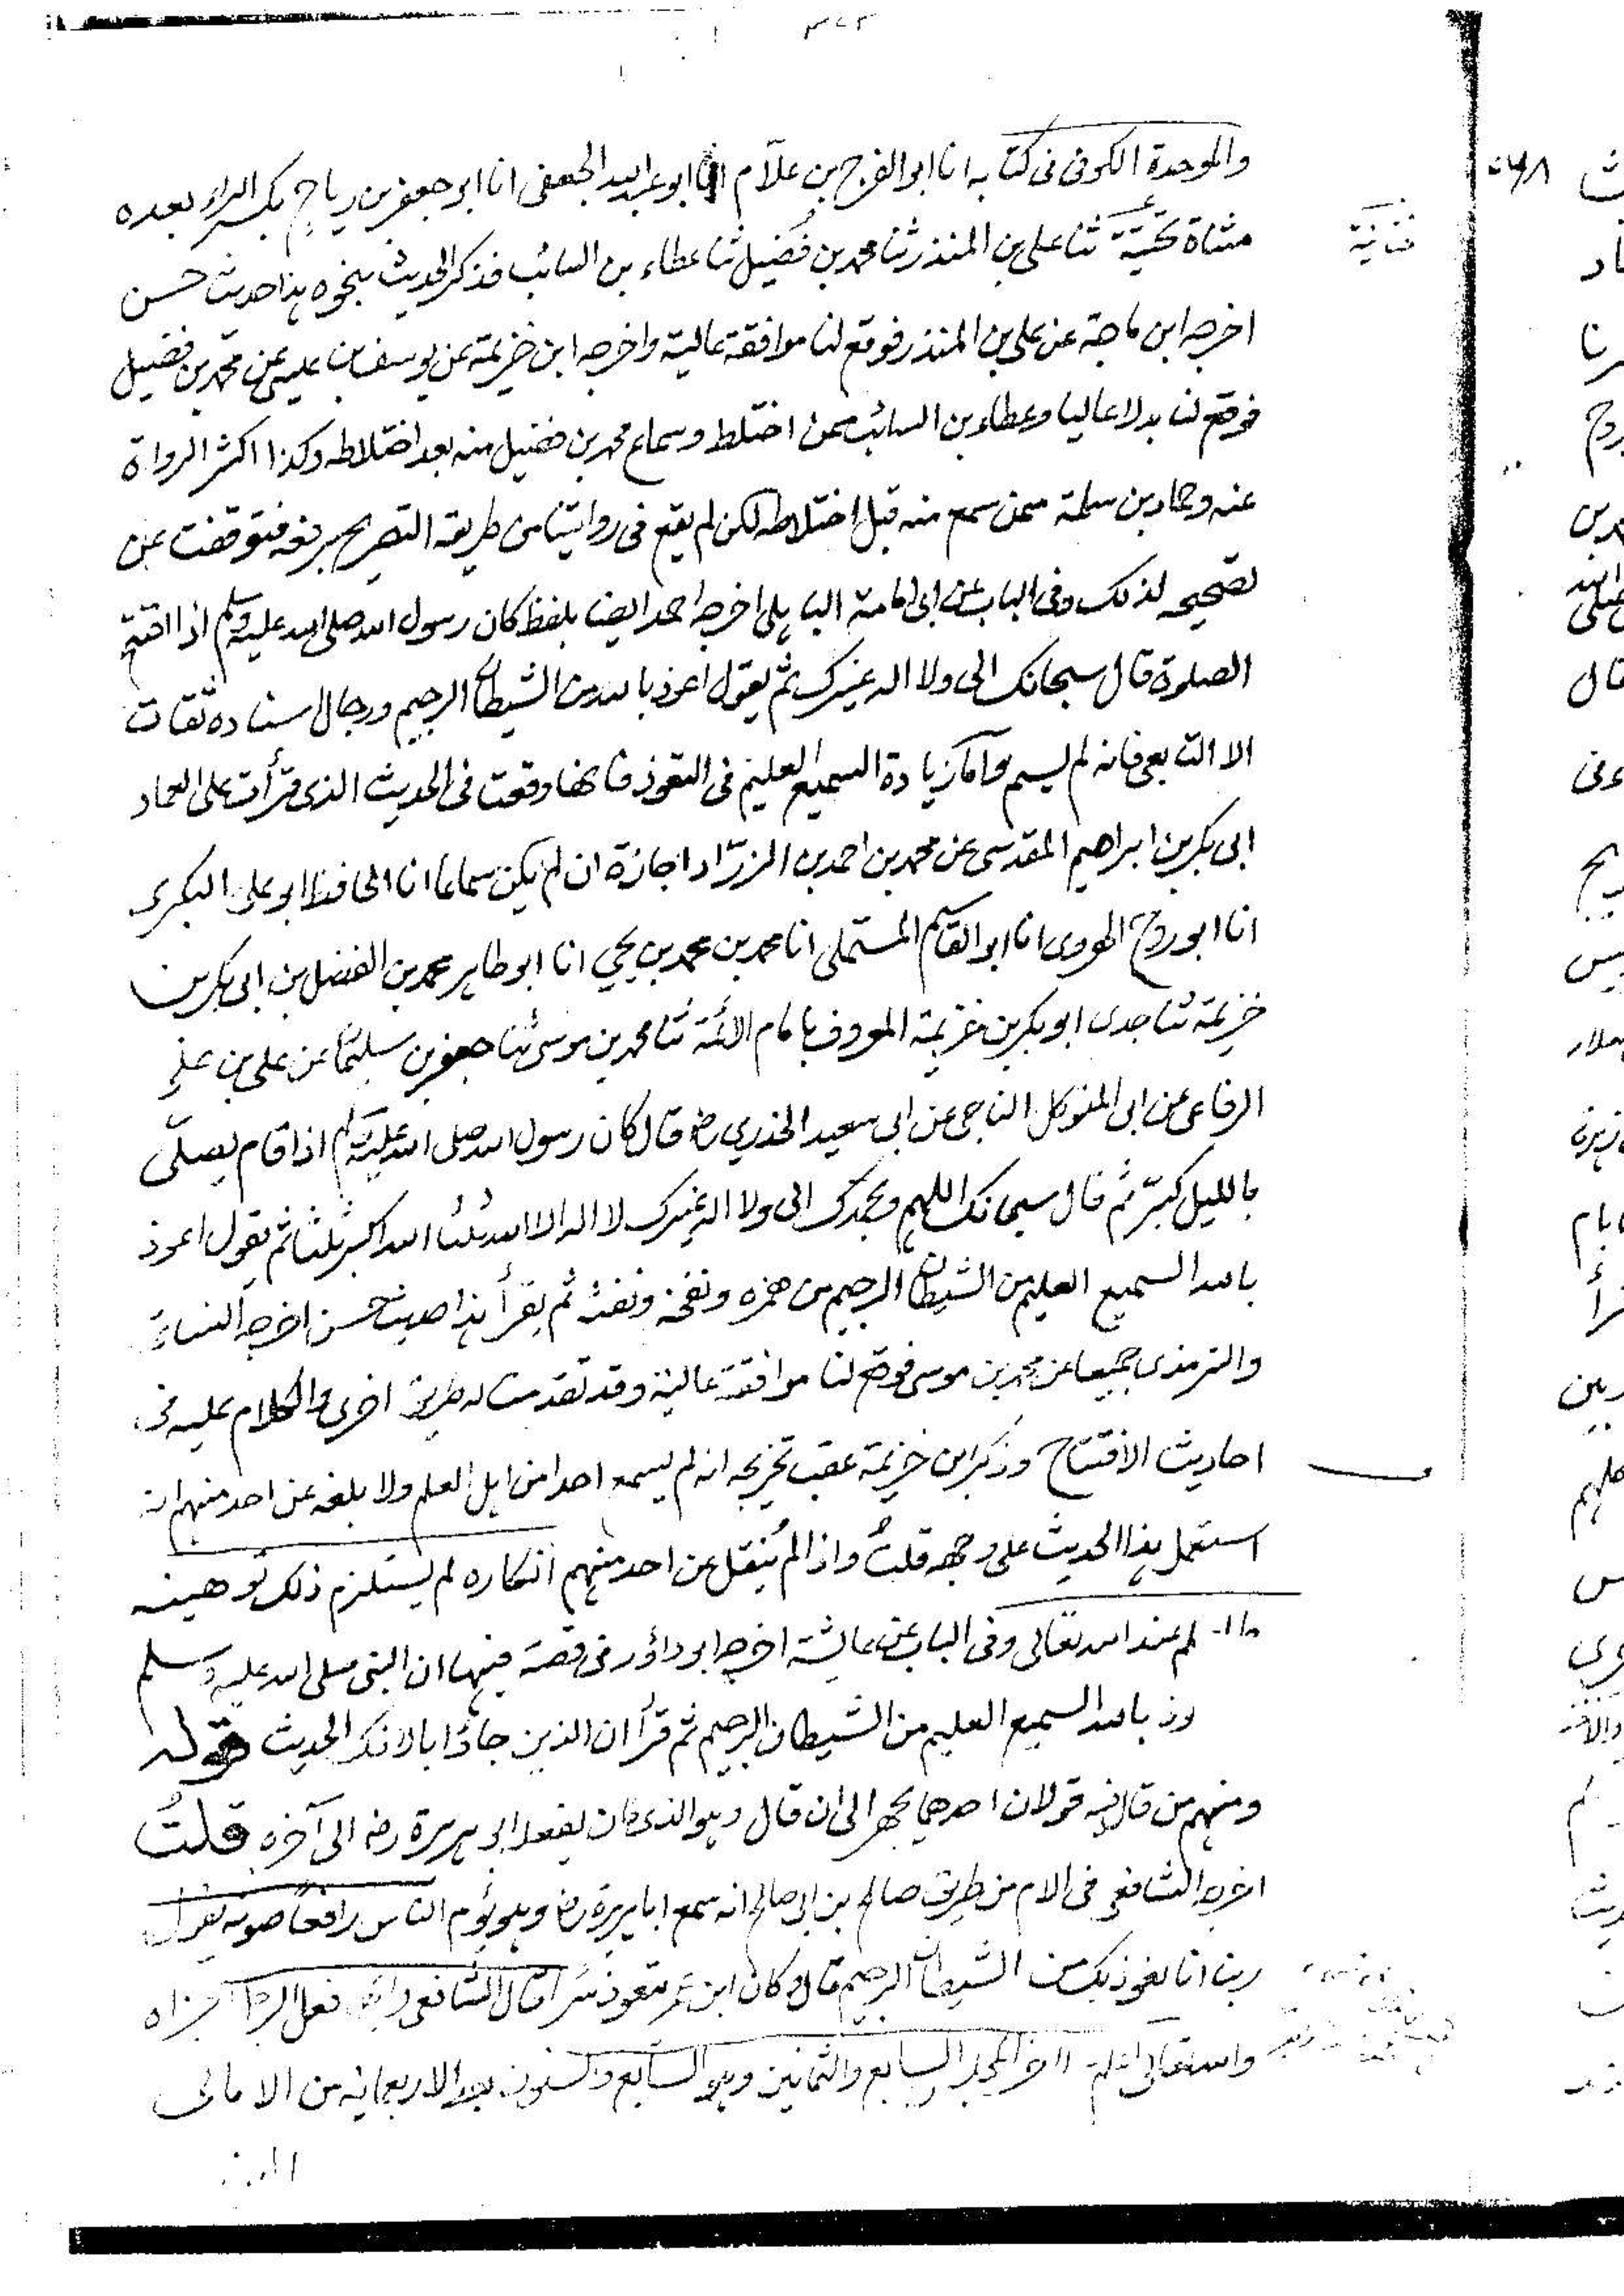 والموحدة الكوفى فى كتابه انا ابو الفرج بن علّام انا ابو عبد الله الجعفى انا ابو جعفر بن رياح بكسر الراء بعده
مثناة تحتية ثنا على بن المنذر ثنا محمد بن فُضَيل ثنا عطاء بن السائب فذكر الحديث بنحوه هذا حديث حسن
اخرجه ابن ماجة عن على بن المنذر فوقع لنا موافقة عالية واخرجه ابن خزيمة عن يوسف بن عيسى عن محمد بن فضيل
فوقع لنا بدلا عاليا وعطاء بن السائب ممن اختلط وسماع محمد بن فضيل منه بعد اختلاطه وكذا اكثر الرواة
عنه وحماد بن سلمة ممن سمع منه قبل اختلاطه لكن لم يقع فى روايتنا من طريقه التصريح برفعه فتوقفت عن
تصحيحه لذلك وفى الباب عن ابى امامة الباهلى اخرجه احمد ايضا بلفظ كان رسول الله صلى الله عليه وسلم اذا افتتح
الصلوة قال سبحانك الى ولا اله غيرك ثم يقول اعوذ بالله من الشيطان الرجيم ورجال اسناده ثقات
الا التابعى فانه لم يسم واما زيادة السميع العليم فى التعوذ فانها وقعت فى الحديث الذى قرأت على العماد
ابى بكر بن ابراهيم المقدسى عن محمد بن احمد بن الزرّاد اجازة ان لم يكن سماعا انا الحافظ ابو على البكرى
انا ابو روح الهروى انا ابو القاسم المستملى انا محمد بن محمد بن يحيى انا ابو طاهر محمد بن الفضل بن ابى بكر بن
خزيمة ثنا جدى ابو بكر بن خزيمة المعروف بامام الائمة ثنا محمد بن موسى ثنا جعفر بن سليمان عن على بن على
الرفاعى عن ابى المتوكل الناجى عن ابى سعيد الخدري رض قال كان رسول الله صلى الله عليه وسلم اذا قام يصلّى
بالليل كبّر ثم قال سبحانك اللهم وبحمدك الى ولا اله غيرك لا اله الا الله ثلثا الله اكبر ثلثا ثم يقول اعوذ
بالله السميع العليم من الشيطان الرجيم من همزه ونفخه ونفثه ثم يقرأ هذا حديث حسن اخرجه النسائى
والترمذى جميعا عن محمد بن موسى فوقع لنا موافقة عالية وقد تقدمت له طريق اخرى والكلام عليه فى
احاديث الافتتاح وذكر ابن خزيمة عقب تخريجه انه لم يسمع احدا من اهل العلم ولا بلغه عن احد منهم انه
استعمل هذا الحديث على وجهه قلتُ واذا لم يُنقل عن احد منهم انكاره لم يستلزم ذلك توهينه
لم عند الله تعالى وفى الباب عن عائشة اخرجه ابو داؤد فى قصة فيها ان النبى صلى الله عليه وسلم
وذ بالله السميع العليم من الشيطان الرجيم ثم قرأ ان الذين جاؤا بالافك الحديث قوله
ومنهم من قال فيه قولان احدهما يجهر الى ان قال وهو الذى كان يفعله ابو هريرة رض الى آخره قلتُ
اخرجه الشافعى فى الام من طريق صالح بن ابى صالح انه سمع ابا هريرة رض وهو يؤم الناس رافعًا صوته يقول
ربنا انا نعوذ بك من الشيطان الرجيم قال وكان ابن عمر يتعوذ سرا قال الشافعى فعل الرجل اجزاه
والله تعالى اعلم اخر المجلس السابع والثمانين وهو السابع والستون بعد الاربعمائه من الامالى